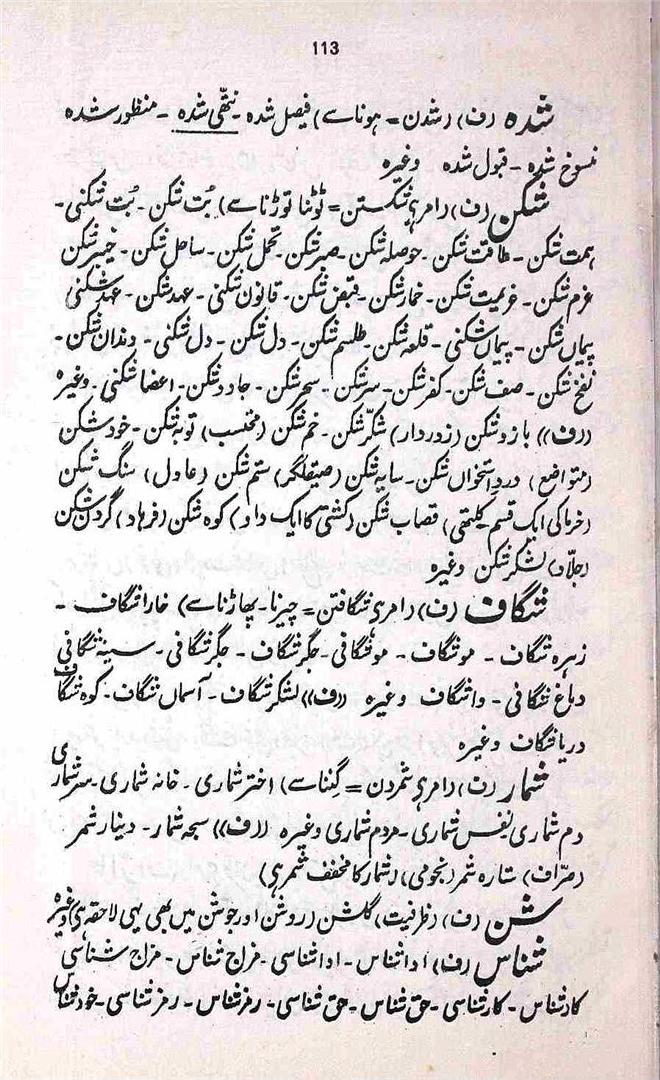 113
شدہ (ف) (شدن = ہونا سے) فیصل شدہ ۔ نتھی شدہ ۔ منظور شدہ
منسوخ شدہ ۔ قبول شدہ وغیرہ
شکن (ف) (امر ہے شکستن = ٹوٹنا توڑنا سے) بُت شکن ۔ بُت شکنی ۔
ہمت شکن ۔ طاقت شکن ۔ حوصلہ شکن ۔ صبر شکن ۔ تحمل شکن ۔ ساحل شکن ۔ خیبر شکن
عزم شکن ۔ عزیمت شکن ۔ خمار شکن ۔ قبض شکن ۔ قانون شکنی ۔ عہد شکن ۔ عہد شکنی
پیماں شکن ۔ پیماں شکنی ۔ قلعہ شکن ۔ طلسم شکن ۔ دل شکن ۔ دل شکنی ۔ دندان شکن ۔
نفخ شکن ۔ صف شکن ۔ کفر شکن ۔ سر شکن ۔ سحر شکن ۔ جادو شکن ۔ اعضا شکنی ۔ وغیرہ
((ف)) بازو شکن (زوردار) شکّر شکن ۔ خم شکن (محتسب) توبہ شکن ۔ خود شکن
(متواضع) درد استخواں شکن ۔ سایہ شکن (صیقلگر) ستم شکن (عادل) سنگ شکن
(خرما کی ایک قسم کلتھی) قصاب شکن (کشتی کا ایک داو) کوہ شکن (فرہاد) گردن شکن
(جلّاد) لشکر شکن وغیرہ
شگاف (ف) (امر ہے شگافتن = چیرنا ۔ پھاڑنا سے) خارا شگاف ۔
زہرہ شگاف ۔ مو شگاف ۔ مو شگافی ۔ جگر شگاف ۔ جگر شگافی ۔ سینہ شگافی
دماغ شگافی ۔ وا شگاف وغیرہ ((ف)) لشکر شگاف ۔ آسماں شگاف ۔ کوہ شگاف
دریا شگاف وغیرہ
شمار (ف) (امر ہے شمردن = گِننا سے) اختر شماری ۔ خانہ شماری ۔ سر شماری
دم شماری نفس شماری ۔ مردم شماری وغیرہ ((ف)) سبحہ شمار ۔ دینار شمر
(صرّاف) ستارہ شمر (نجومی) (شمار کا مخفف شمر ہے)
شن (ف) (ظرفیت) گلشن (روشن اور جوشن میں بھی یہی لاحقہ ہے) وغیرہ
شناس (ف) ادا شناس ۔ ادا شناسی ۔ مزاج شناس ۔ مزاج شناسی
کار شناس ۔ کار شناسی ۔ حق شناس ۔ حق شناسی ۔ رمز شناس ۔ رمز شناسی ۔ خود شناس